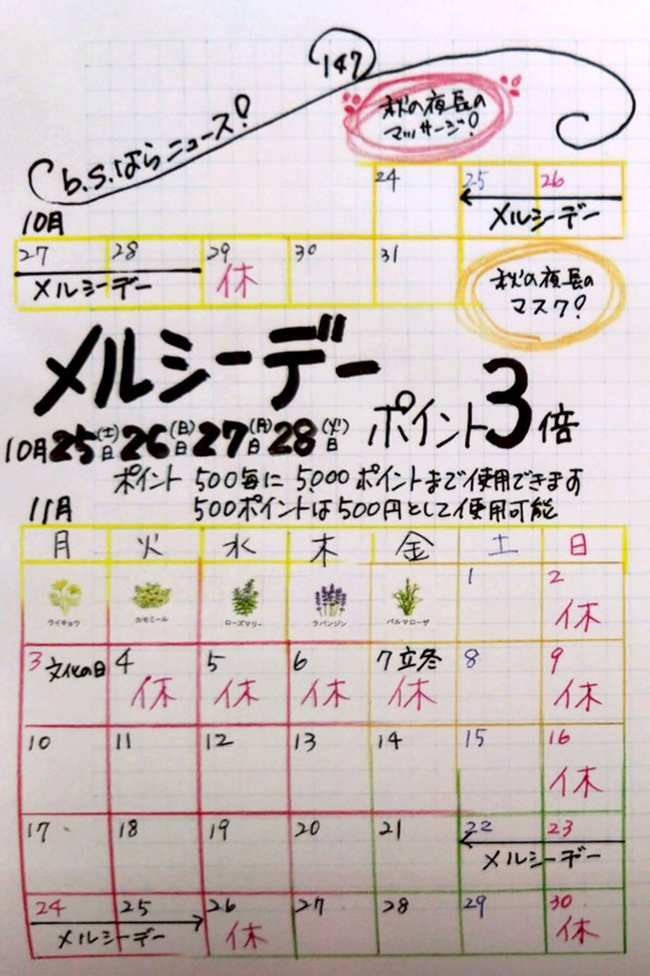 147
b.s.ばらニュース!
秋の夜長の
マッサージ!
24 25 26
メルシーデー
10月
27 28 29 30 31
メルシーデー 休
秋の夜長の
マスク!
メルシーデー
10月25日(土)26日(日)27日(月)28日(火) ポイント3倍
ポイント 500毎に 5,000ポイントまで使用できます
500ポイントは500円として使用可能
11月
月 火 水 木 金 土 日
1 2
ウイキョウ カモミール ローズマリー ラバンジン パルマローザ 休
3 文化の日 4 5 6 7 立冬 8 9
休 休 休 休 休
10 11 12 13 14 15 16
休
17 18 19 20 21 22 23
メルシーデー
24 25 26 27 28 29 30
メルシーデー 休 休